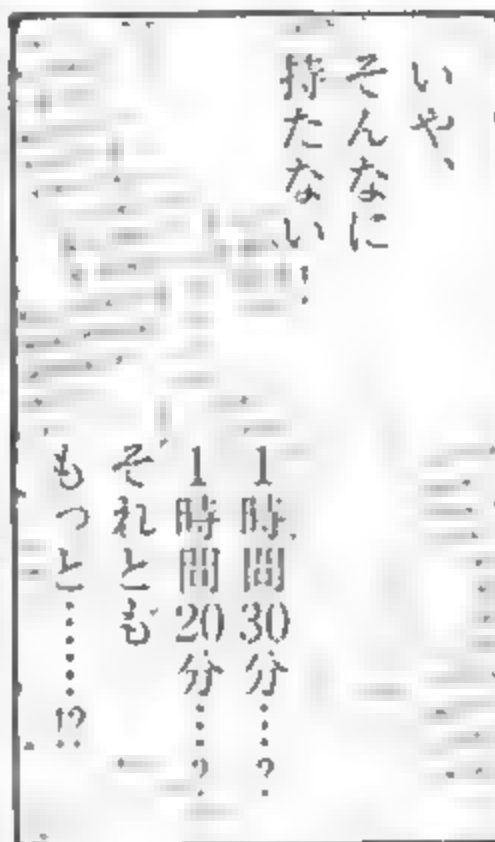 いや、
そんなに
持たない…
1時間30分…?
1時間20分…?
それとも
もっと……!?